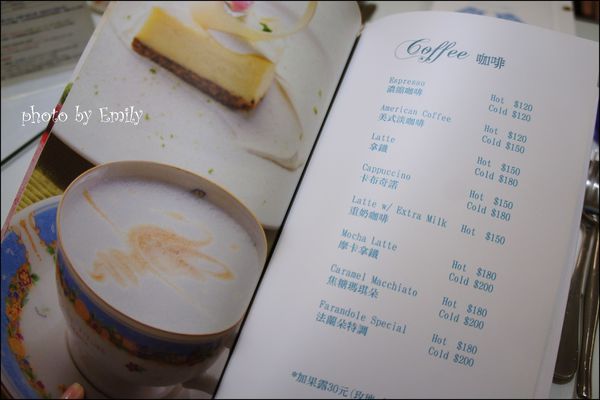 photo by Emily
Coffee 咖啡
Espresso
濃縮咖啡
Hot $120
Cold $120
American Coffee
美式淡咖啡
Hot $120
Cold $150
Latte
拿鐵
Hot $150
Cold $180
Cappuccino
卡布奇諾
Hot $150
Cold $180
Latte w/ Extra Milk
重奶咖啡
Hot $150
Mocha Latte
摩卡拿鐵
Hot $180
Cold $200
Caramel Macchiato
焦糖瑪琪朵
Hot $180
Cold $200
Farandole Special
法蘭朵特調
Hot $180
Cold $200
*加果露30元(玫瑰